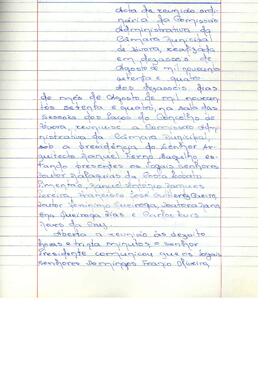 Acta da reunião ordi-
nária da Comissão
Administrativa da
Câmara Municipal
de Évora, realizada
em dezasseis de
Agosto de mil novecentos
setenta e quatro
Aos dezasseis dias
do mês de Agosto de mil novecen-
tos setenta e quatro, na sala das
sessões dos Paços do Concelho de
Évora, reuniu-se a Comissão Admi-
nistrativa da Câmara Municipal,
sob a presidência do Senhor Ar-
quitecto Manuel, es-
tando presentes os vogais senhores
Doutor da Lobato
Pimentão, Manuel António
Pereira, Francisco José
Doutor Queiroga, Doutora
Queiroga Dias e Carlos Luís
da Cruz.
Aberta a reunião às dezoito
horas e trinta minutos, o senhor
Presidente comunicou que os vogais
senhores Domingos Oliveira